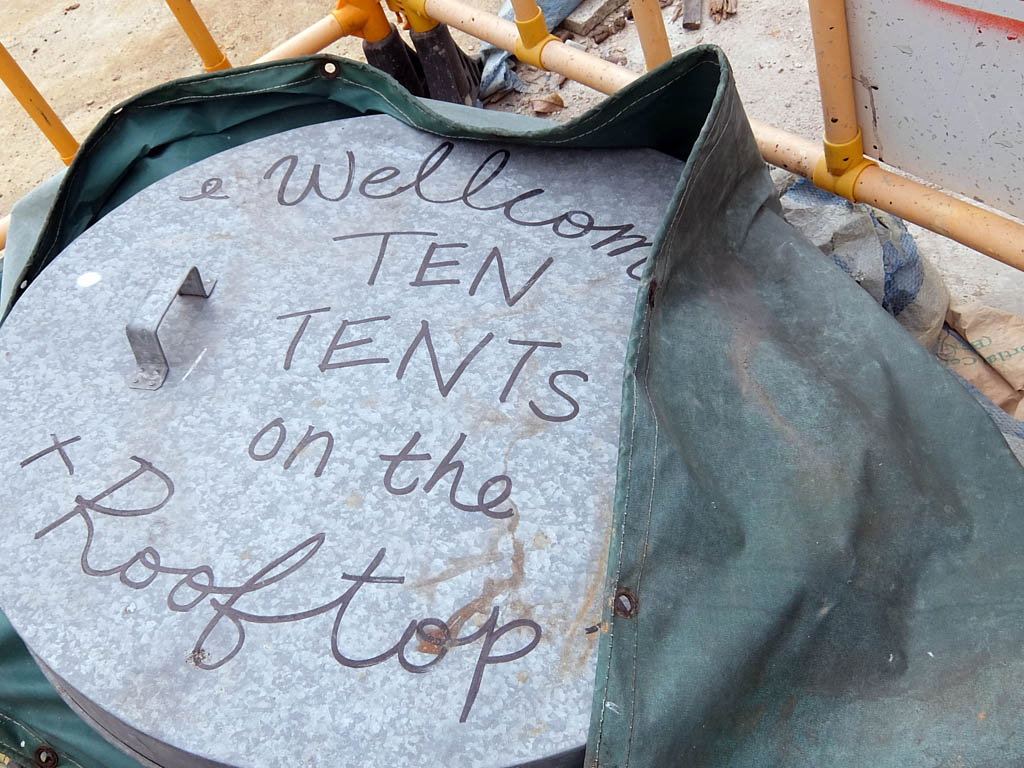 e Wellcom
TEN
TENTS
on the
x Rooftop